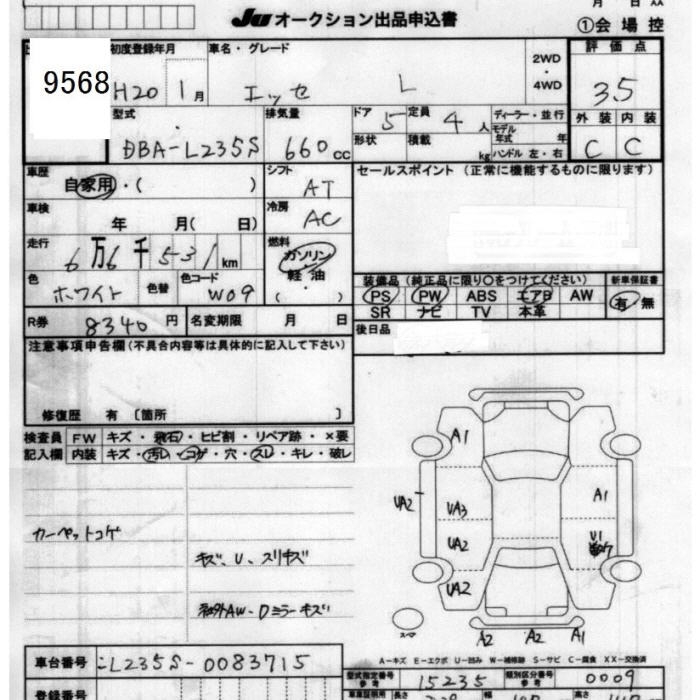 月 日 XX
Ju オークション出品申込書
①会場控
9568
初度登録年月
車名・グレード
2WD・4WD
評価点
H20 1月
エッセ L
3.5
型式
排気量
ドア
定員
ディーラー・並行
外装 内装
DBA-L235S
660cc
5
4人
モデル年式 年
形状
積載
kg
ハンドル 左・右
C C
車歴
自家用・( )
シフト
AT
セールスポイント (正常に機能するものに限ります)
車検
年 月( 日)
冷房
AC
走行
6万6千531km
燃料
ガソリン・軽油・( )
色
色替
色コード
ホワイト
W09
装備品(純正品に限り○をつけてください)
新車保証書
PS PW ABS エアB AW
有・無
SR ナビ TV 本革
R券 8340円
名変期限 月 日
後日品
注意事項申告欄(不具合内容等は具体的に記入して下さい)
修復歴 有〔箇所 〕
検査員記入欄
FW キズ・飛石・ヒビ割・リペア跡・×要
内装 キズ・汚レ・コゲ・穴・スレ・キレ・破レ
カーペットコゲ
キズ、U、スリキズ
社外AW・Dミラーキズ
A1
UA2
UA3
A1
UA2
U1
UA2
スマ
A2 A2 A1
A-キズ E-エクボ U-凹み W-補修跡 S-サビ C-腐食 XX-交換済
車台番号
L235S-0083715
型式指定番号
15235
類別区分番号
0009
登録番号
長さ
幅
高さ